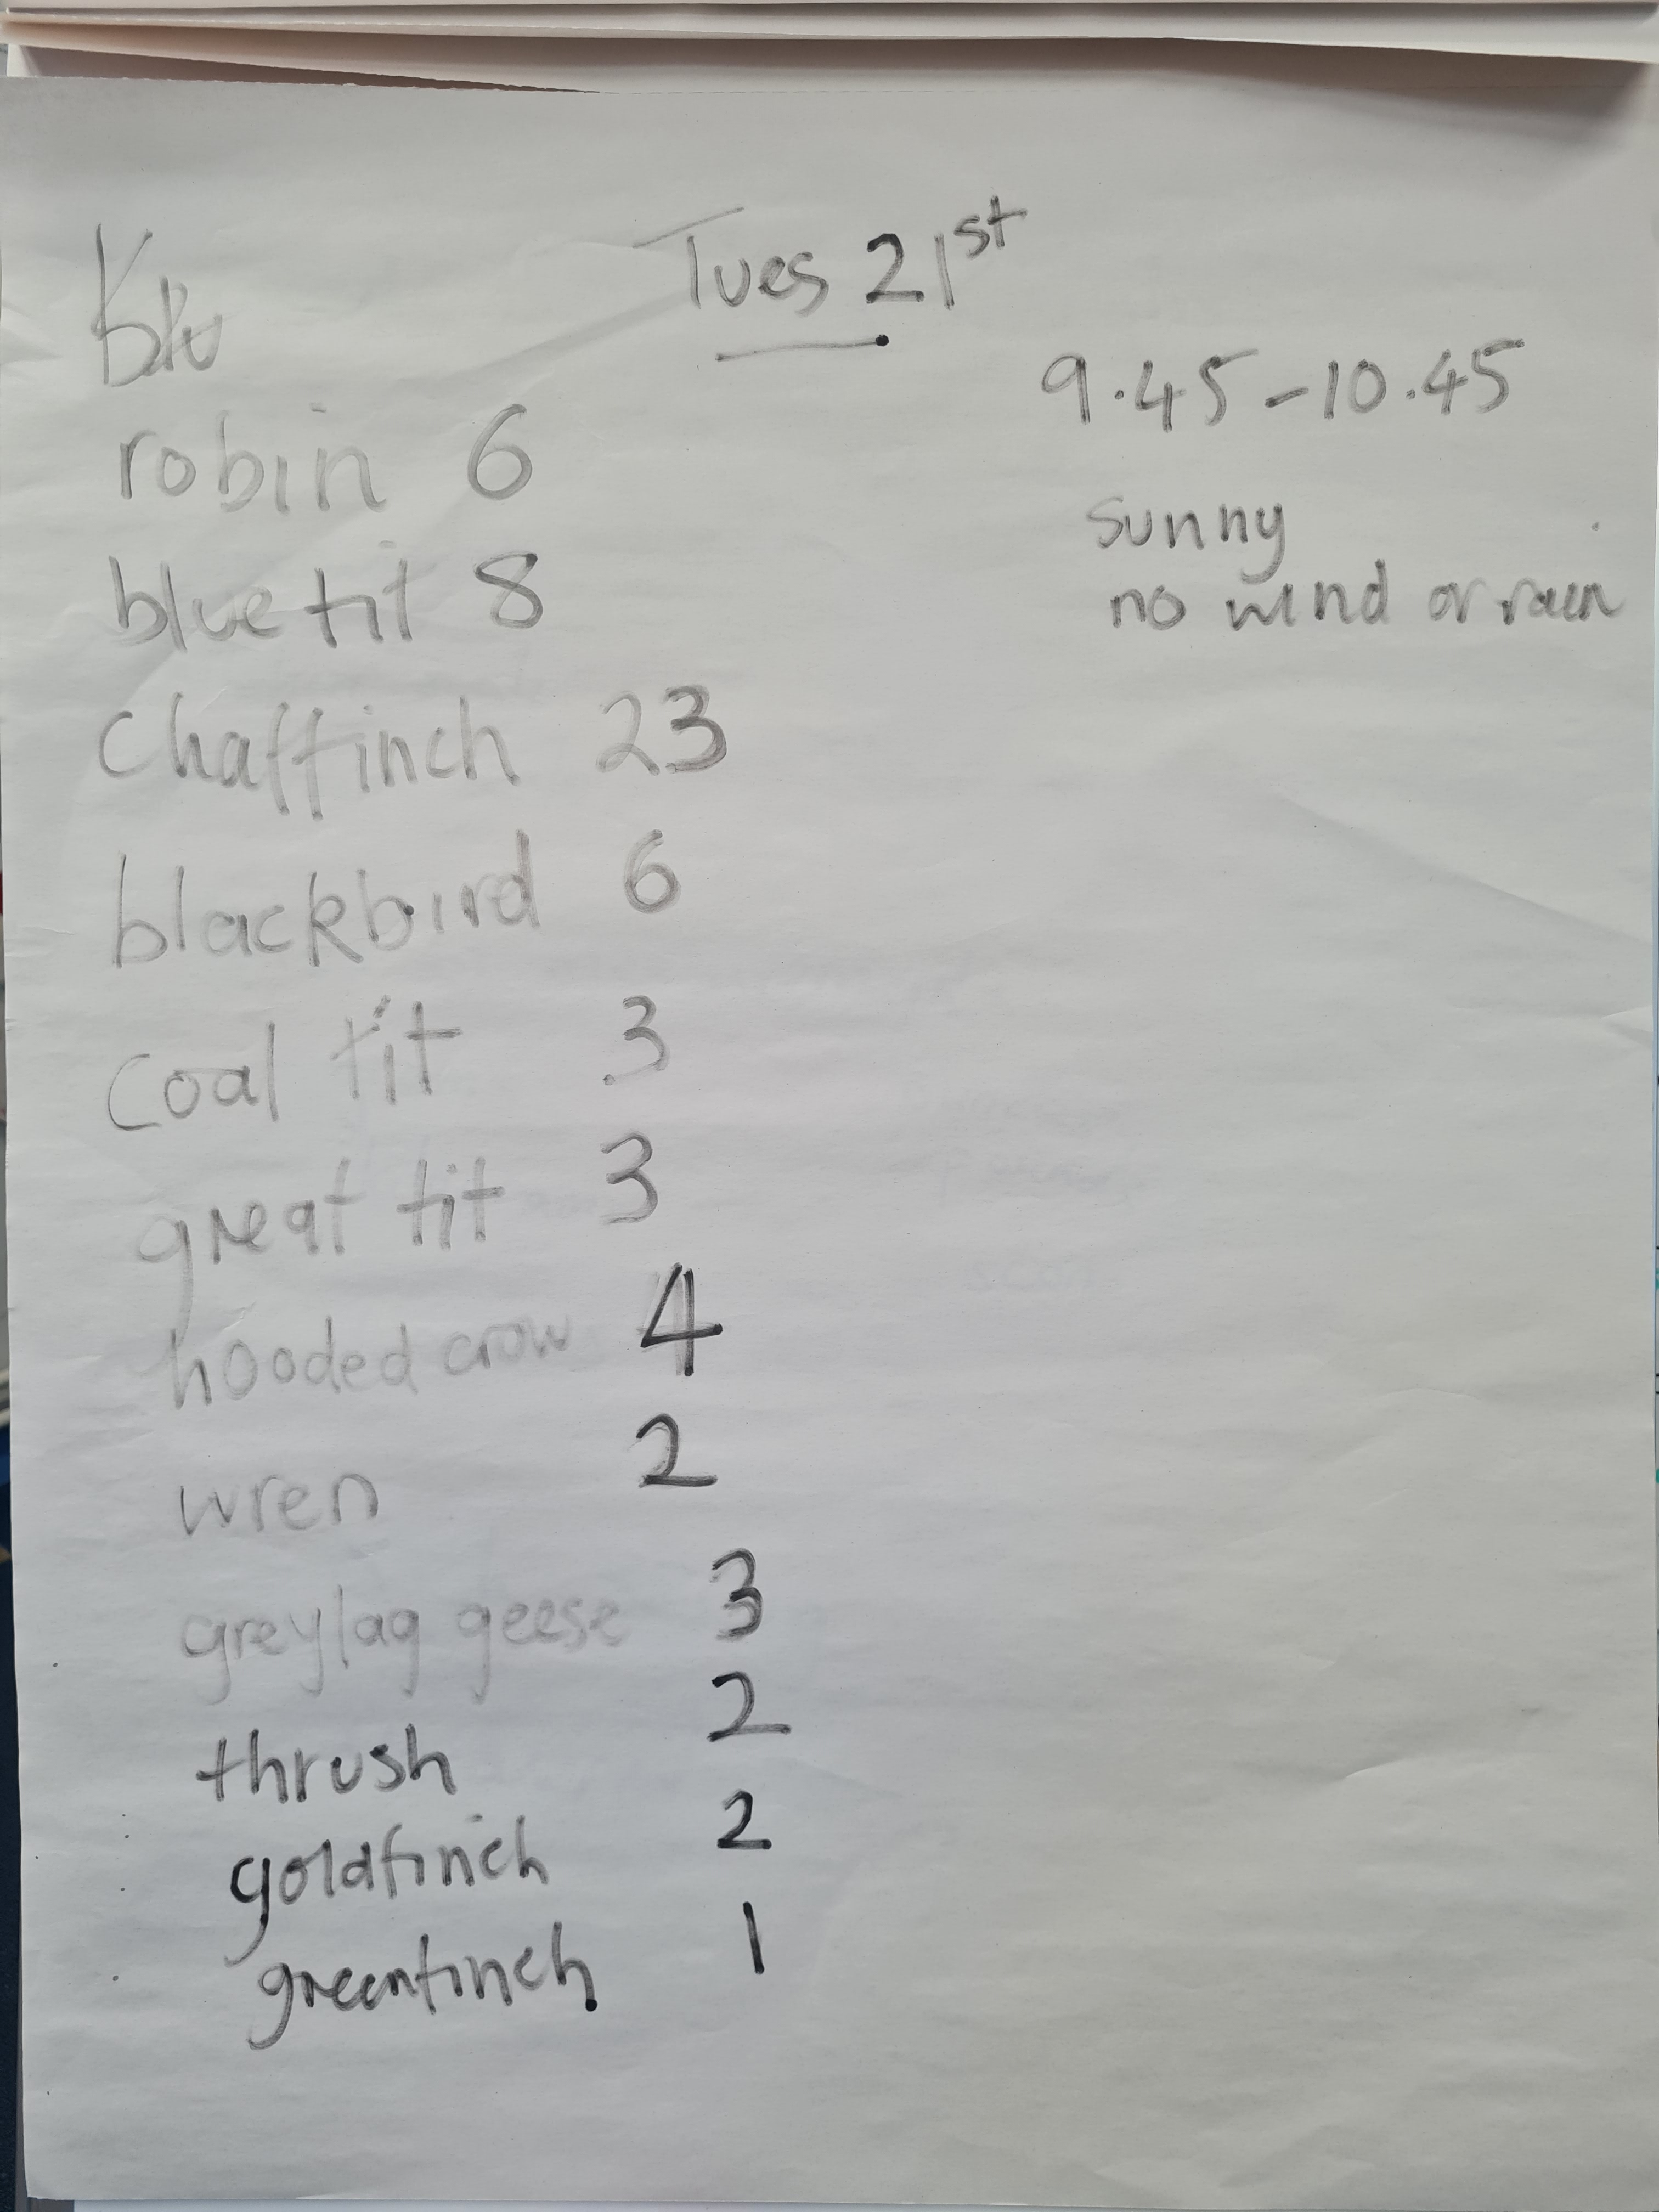 Tues 21st
9.45-10.45
sunny
no wind or rain
robin 6
blue tit 8
Chaffinch 23
blackbird 6
coal tit 3
great tit 3
hooded crow 4
wren 2
greylag geese 3
thrush 2
goldfinch 2
greenfinch 1